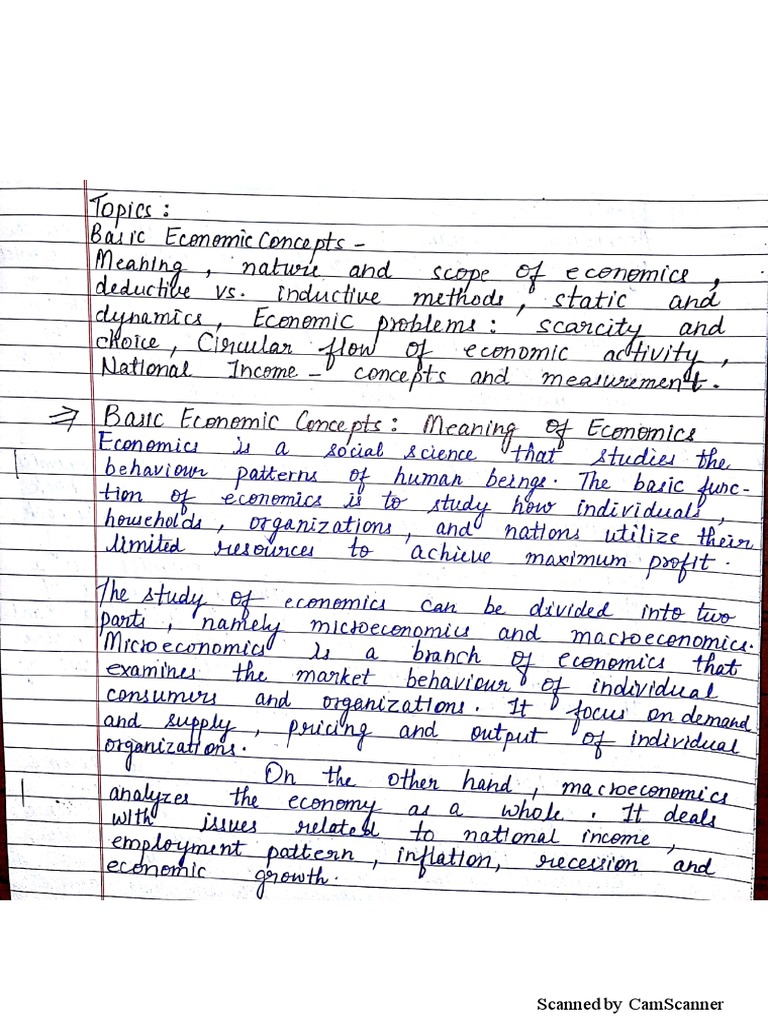 Topics :
Basic Economic Concepts -
Meaning , nature and scope of economics ,
deductive vs. inductive methods , static and
dynamics , Economic problems : scarcity and
choice , Circular flow of economic activity ,
National Income - concepts and measurement .
⇒ Basic Economic Concepts : Meaning of Economics
Economics is a social science that studies the
behaviour patterns of human beings . The basic func-
tion of economics is to study how individuals ,
households , organizations , and nations utilize their
limited resources to achieve maximum profit .
The study of economics can be divided into two
parts , namely microeconomics and macroeconomics .
Microeconomics is a branch of economics that
examines the market behaviour of individual
consumers and organizations . It focus on demand
and supply , pricing and output of individual
organizations .
On the other hand , macroeconomics
analyzes the economy as a whole . It deals
with issues related to national income ,
employment pattern , inflation , recession and
economic growth .
Scanned by CamScanner